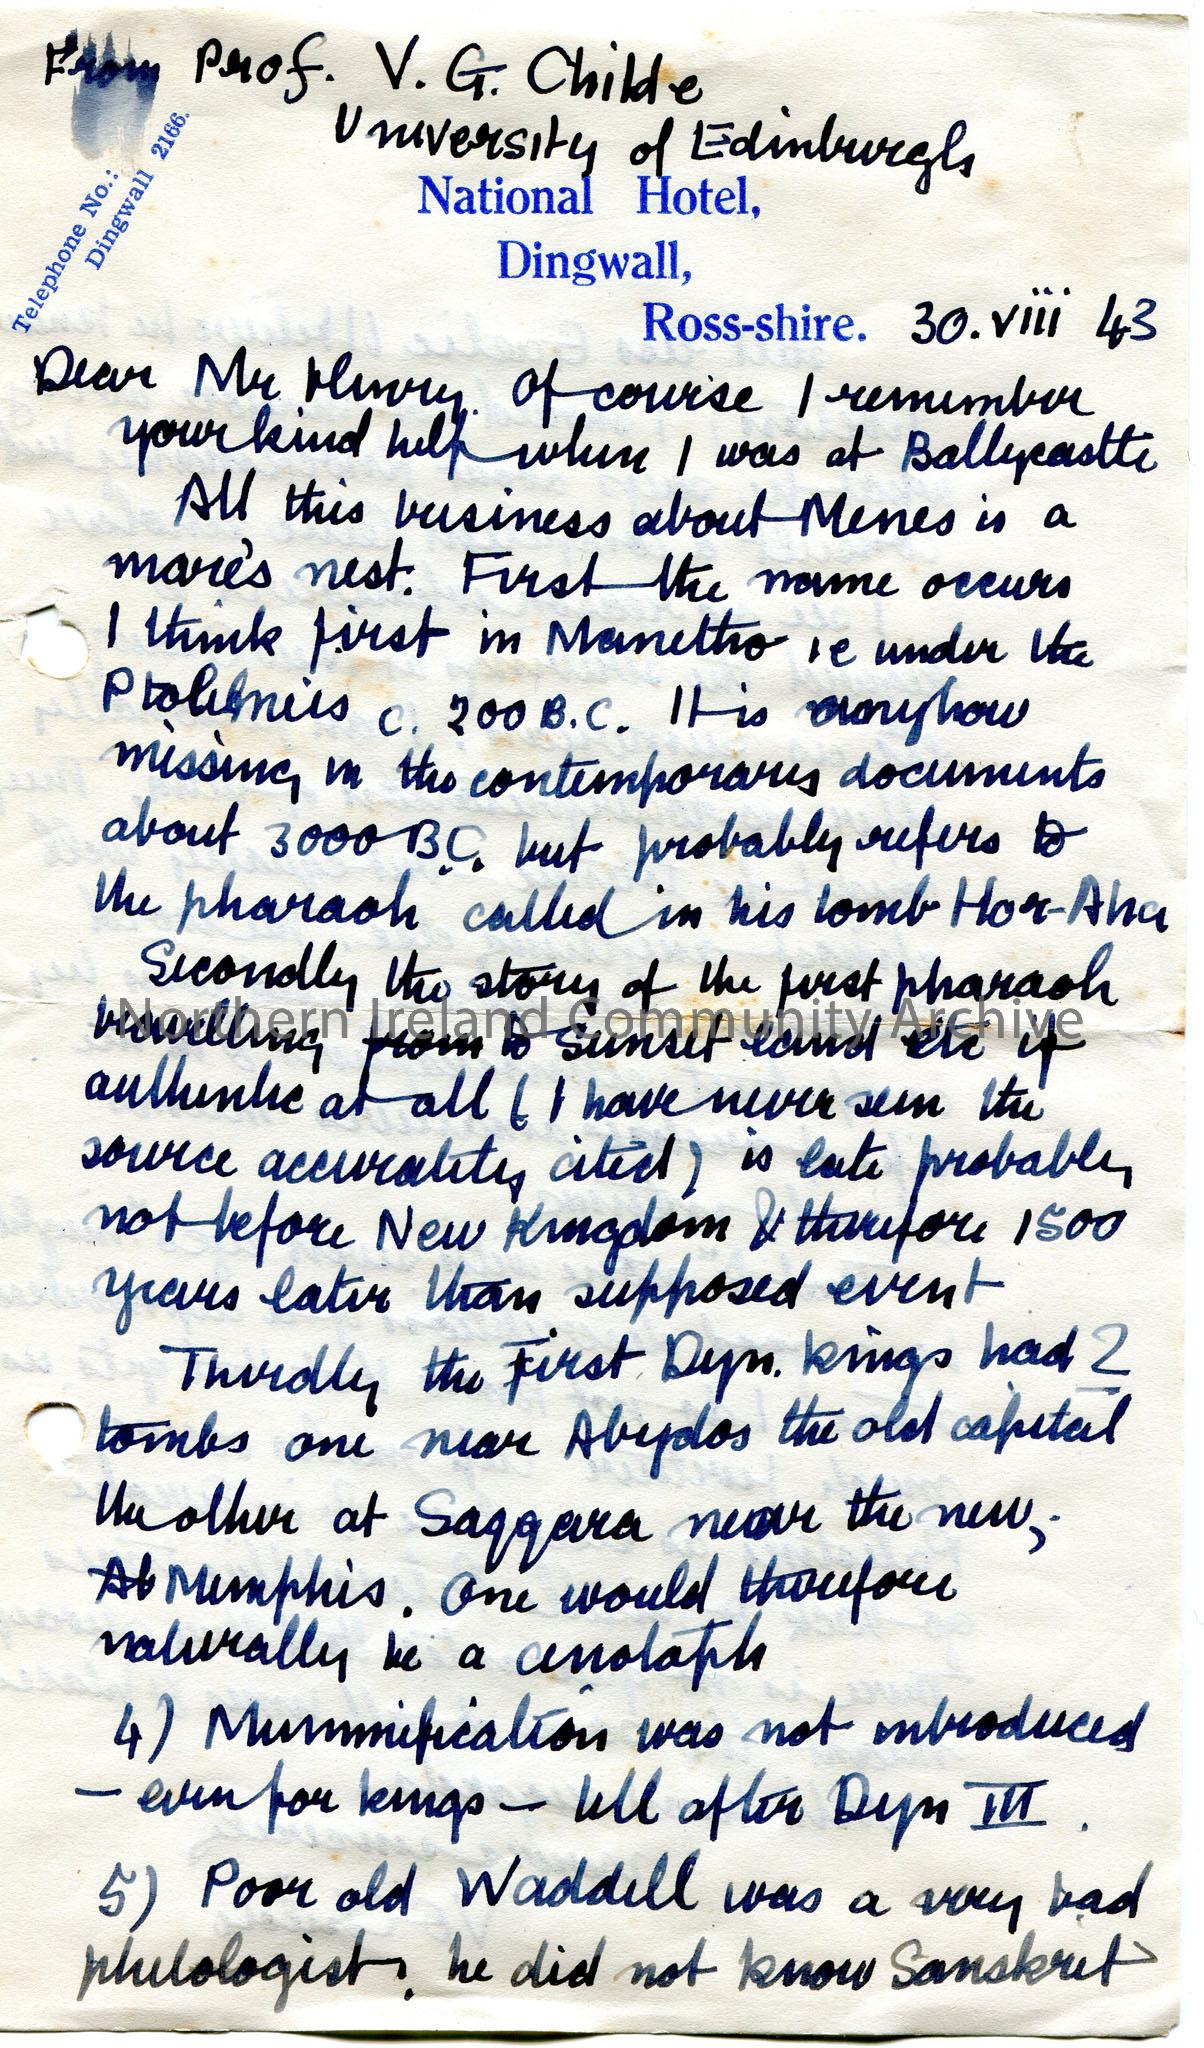 From Prof. V. G. Childe
University of Edinburgh
Telephone No.:
Dingwall 2166.
National Hotel,
Dingwall,
Ross-shire. 30.viii 43
Dear Mr Henry. Of course I remember
your kind help when I was at Ballycastle
All this business about Menes is a
mare's nest. First the name occurs
I think first in Manetho ie under the
Ptolemies c. 200 B.C. It is anyhow
missing in the contemporary documents
about 3000 B.C. but probably refers to
the pharaoh called in his tomb Hor-Aha
Secondly the story of the first pharaoh
travelling from to Sunset land etc if
authentic at all (I have never seen the
source accurately cited) is late probably
not before New Kingdom & therefore 1500
years later than supposed event
Thirdly the First Dyn. kings had 2
tombs one near Abydos the old capital
the other at Saqqara near the new,
Ab Memphis. One would therefore
naturally be a cenotaph
4) Mummification was not introduced
— even for kings — till after Dyn III.
5) Poor old Waddell was a very bad
philologist, he did not know Sanskrit
Northern Ireland Community Archive